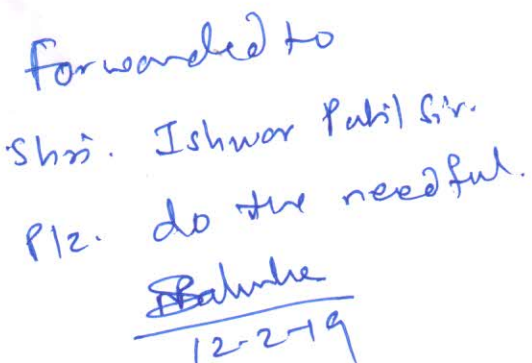 Forwarded to
Shri. Ishwar Patil Sir.
Plz. do the needful.
12-2-19